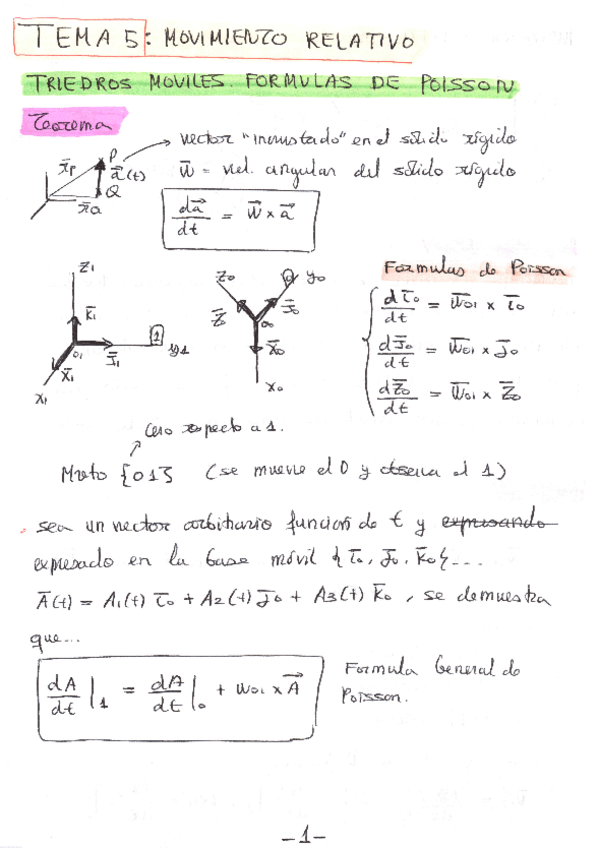 TEMA 5: MOVIMIENTO RELATIVO
TRIEDROS MOVILES. FORMULAS DE POISSON
Teorema
vector "incrustado" en el sólido rígido
x̄p P ā(t) Q x̄Q
w̄ = vel. angular del sólido rígido
da⃗/dt = w⃗ x a⃗
Formulas de Poisson
z1 k̄1 o1 j̄1 1 y1 x̄1 x1
z0 z̄0 0 y0 j̄0 o0 x̄0 x0
dī0/dt = w̄01 x ī0
dj̄0/dt = w̄01 x j̄0
dz̄0/dt = w̄01 x z̄0
Cero respecto a 1.
Mvto {01} (se mueve el 0 y observa el 1)
. sea un vector arbitrario función de t y expresando
expresado en la base móvil {ī0, j̄0, k̄0}...
Ā(t) = A1(t) ī0 + A2(t) j̄0 + A3(t) k̄0, se demuestra
que...
dA/dt |1 = dA/dt |0 + w01 x A⃗
Formula General de
Poisson.
-1-